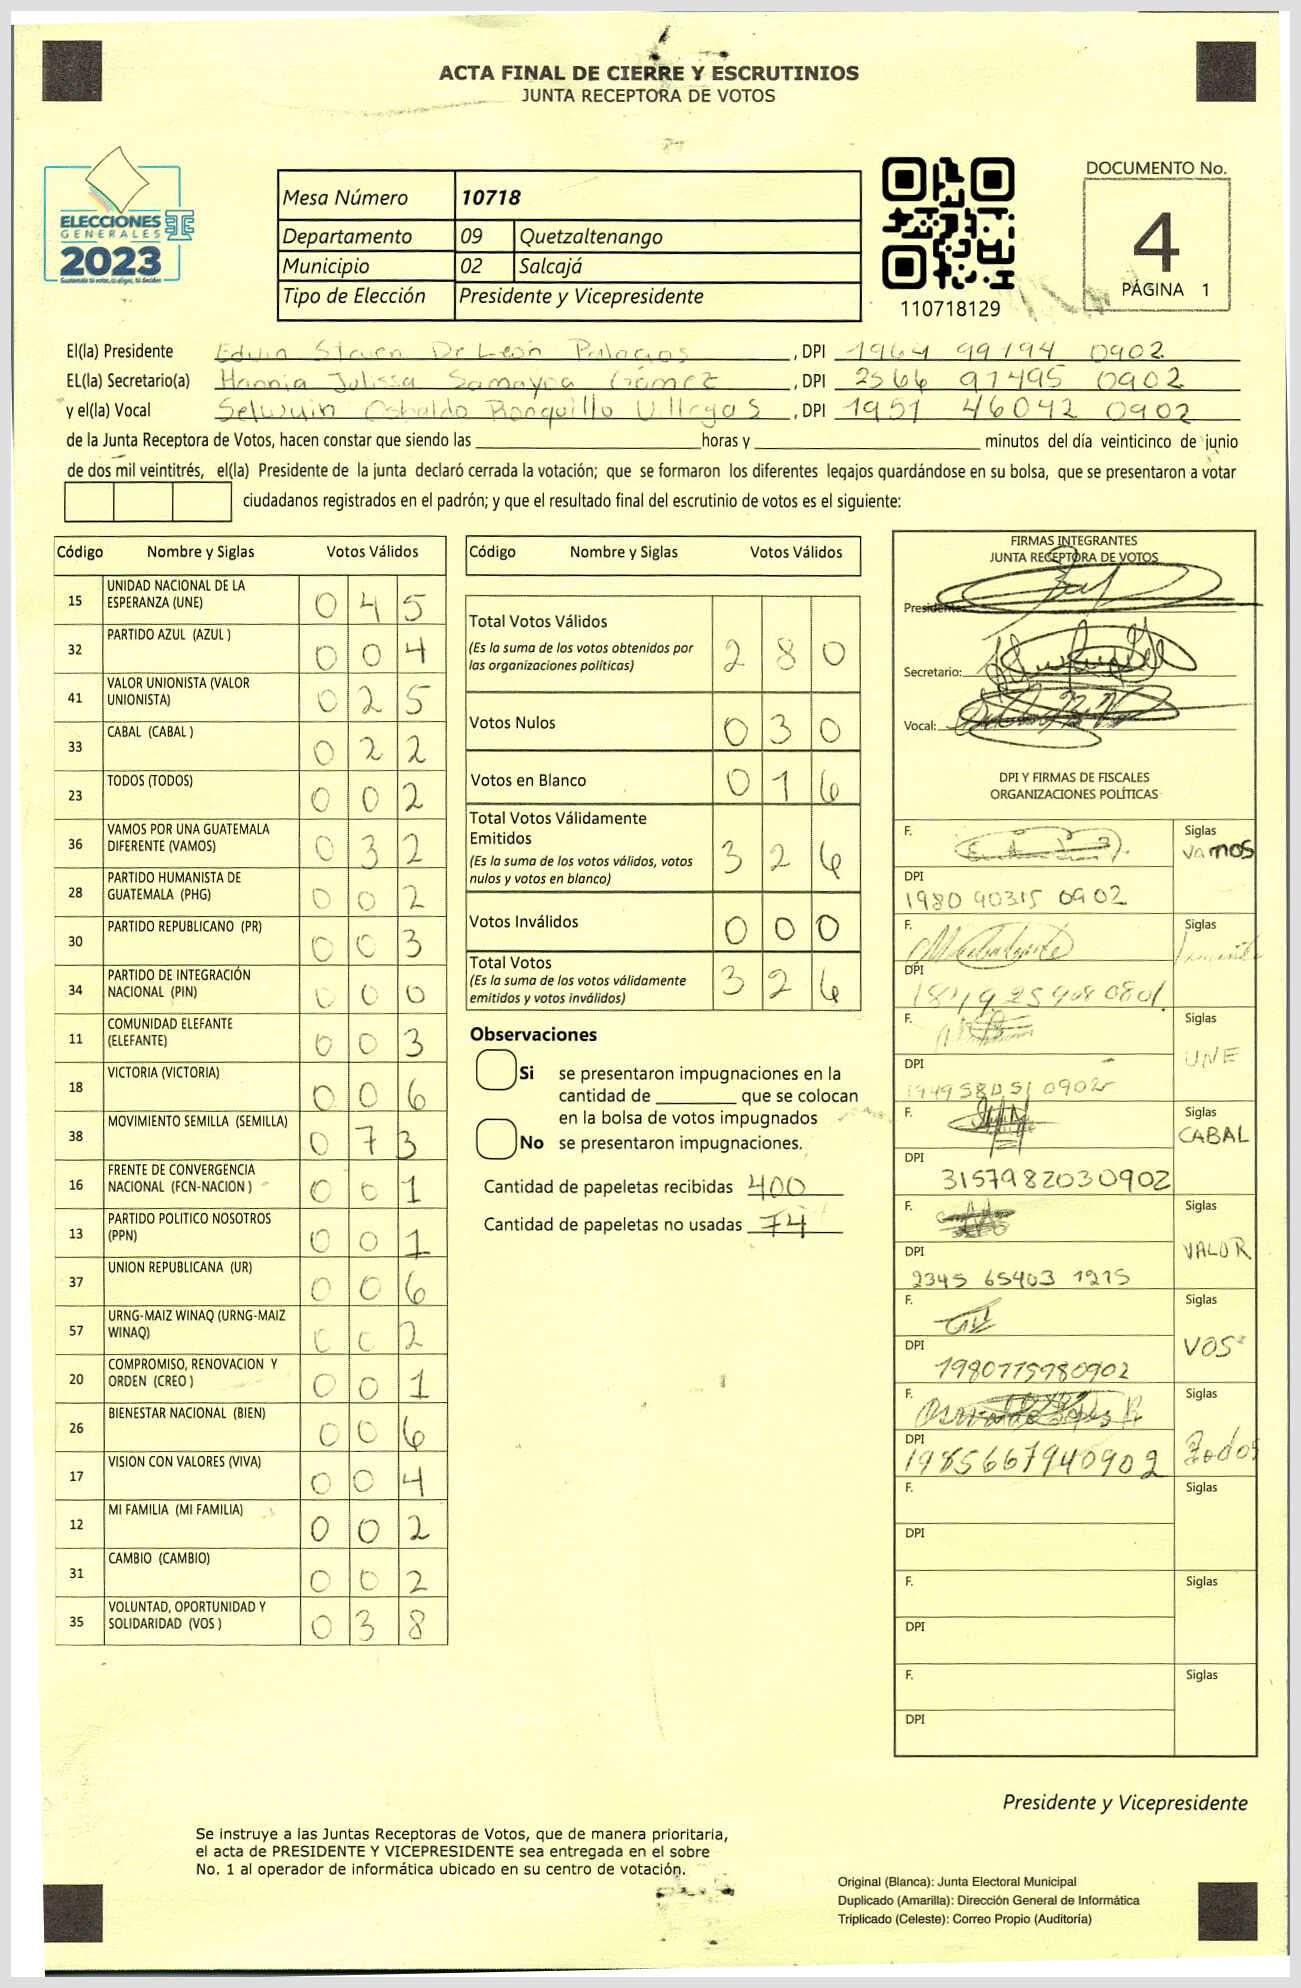 ACTA FINAL DE CIERRE Y ESCRUTINIOS
JUNTA RECEPTORA DE VOTOS
ELECCIONES
GENERALES
2023
Mesa Número 10718
Departamento 09 Quetzaltenango
Municipio 02 Salcajá
Tipo de Elección Presidente y Vicepresidente
110718129
DOCUMENTO No.
4
PÁGINA 1
El(la) Presidente Edvin Steven De León Palacios, DPI 1964 99194 0902
EL(la) Secretario(a) Hannia Julissa Samayoa Gámez, DPI 2566 97495 0902
y el(la) Vocal Selwuin Osbaldo Ronquillo Villegas, DPI 1951 46042 0902
de la Junta Receptora de Votos, hacen constar que siendo las horas y minutos del día veinticinco de junio
de dos mil veintitrés, el(la) Presidente de la junta declaró cerrada la votación; que se formaron los diferentes legajos guardándose en su bolsa, que se presentaron a votar
ciudadanos registrados en el padrón; y que el resultado final del escrutinio de votos es el siguiente:
Código Nombre y Siglas Votos Válidos
15 UNIDAD NACIONAL DE LA ESPERANZA (UNE) 045
32 PARTIDO AZUL (AZUL ) 004
41 VALOR UNIONISTA (VALOR UNIONISTA) 025
33 CABAL (CABAL ) 022
23 TODOS (TODOS) 002
36 VAMOS POR UNA GUATEMALA DIFERENTE (VAMOS) 032
28 PARTIDO HUMANISTA DE GUATEMALA (PHG) 002
30 PARTIDO REPUBLICANO (PR) 003
34 PARTIDO DE INTEGRACIÓN NACIONAL (PIN) 000
11 COMUNIDAD ELEFANTE (ELEFANTE) 003
18 VICTORIA (VICTORIA) 006
38 MOVIMIENTO SEMILLA (SEMILLA) 073
16 FRENTE DE CONVERGENCIA NACIONAL (FCN-NACION ) 001
13 PARTIDO POLITICO NOSOTROS (PPN) 001
37 UNION REPUBLICANA (UR) 006
57 URNG-MAIZ WINAQ (URNG-MAIZ WINAQ) 002
20 COMPROMISO, RENOVACION Y ORDEN (CREO ) 001
26 BIENESTAR NACIONAL (BIEN) 006
17 VISION CON VALORES (VIVA) 004
12 MI FAMILIA (MI FAMILIA) 002
31 CAMBIO (CAMBIO) 002
35 VOLUNTAD, OPORTUNIDAD Y SOLIDARIDAD (VOS ) 038
Código Nombre y Siglas Votos Válidos
Total Votos Válidos 280
(Es la suma de los votos obtenidos por
las organizaciones políticas)
Votos Nulos 030
Votos en Blanco 016
Total Votos Válidamente
Emitidos 326
(Es la suma de los votos válidos, votos
nulos y votos en blanco)
Votos Inválidos 000
Total Votos 326
(Es la suma de los votos válidamente
emitidos y votos inválidos)
Observaciones
Si se presentaron impugnaciones en la
cantidad de que se colocan
en la bolsa de votos impugnados
No se presentaron impugnaciones.
Cantidad de papeletas recibidas 400
Cantidad de papeletas no usadas 74
FIRMAS INTEGRANTES
JUNTA RECEPTORA DE VOTOS
Presidente:
Secretario:
Vocal:
DPI Y FIRMAS DE FISCALES
ORGANIZACIONES POLÍTICAS
F. Siglas
vamos
DPI
1980 90315 0902
F. Siglas
DPI
F. Siglas
UNE
DPI
F. Siglas
CABAL
DPI
3157982030902
F. Siglas
VALOR
DPI
2345 65403 1215
F. Siglas
VOS
DPI
1980775980902
F. Siglas
Todos
DPI
1985667940902
F. Siglas
DPI
F. Siglas
DPI
F. Siglas
DPI
Presidente y Vicepresidente
Se instruye a las Juntas Receptoras de Votos, que de manera prioritaria,
el acta de PRESIDENTE Y VICEPRESIDENTE sea entregada en el sobre
No. 1 al operador de informática ubicado en su centro de votación.
Original (Blanca): Junta Electoral Municipal
Duplicado (Amarilla): Dirección General de Informática
Triplicado (Celeste): Correo Propio (Auditoría)